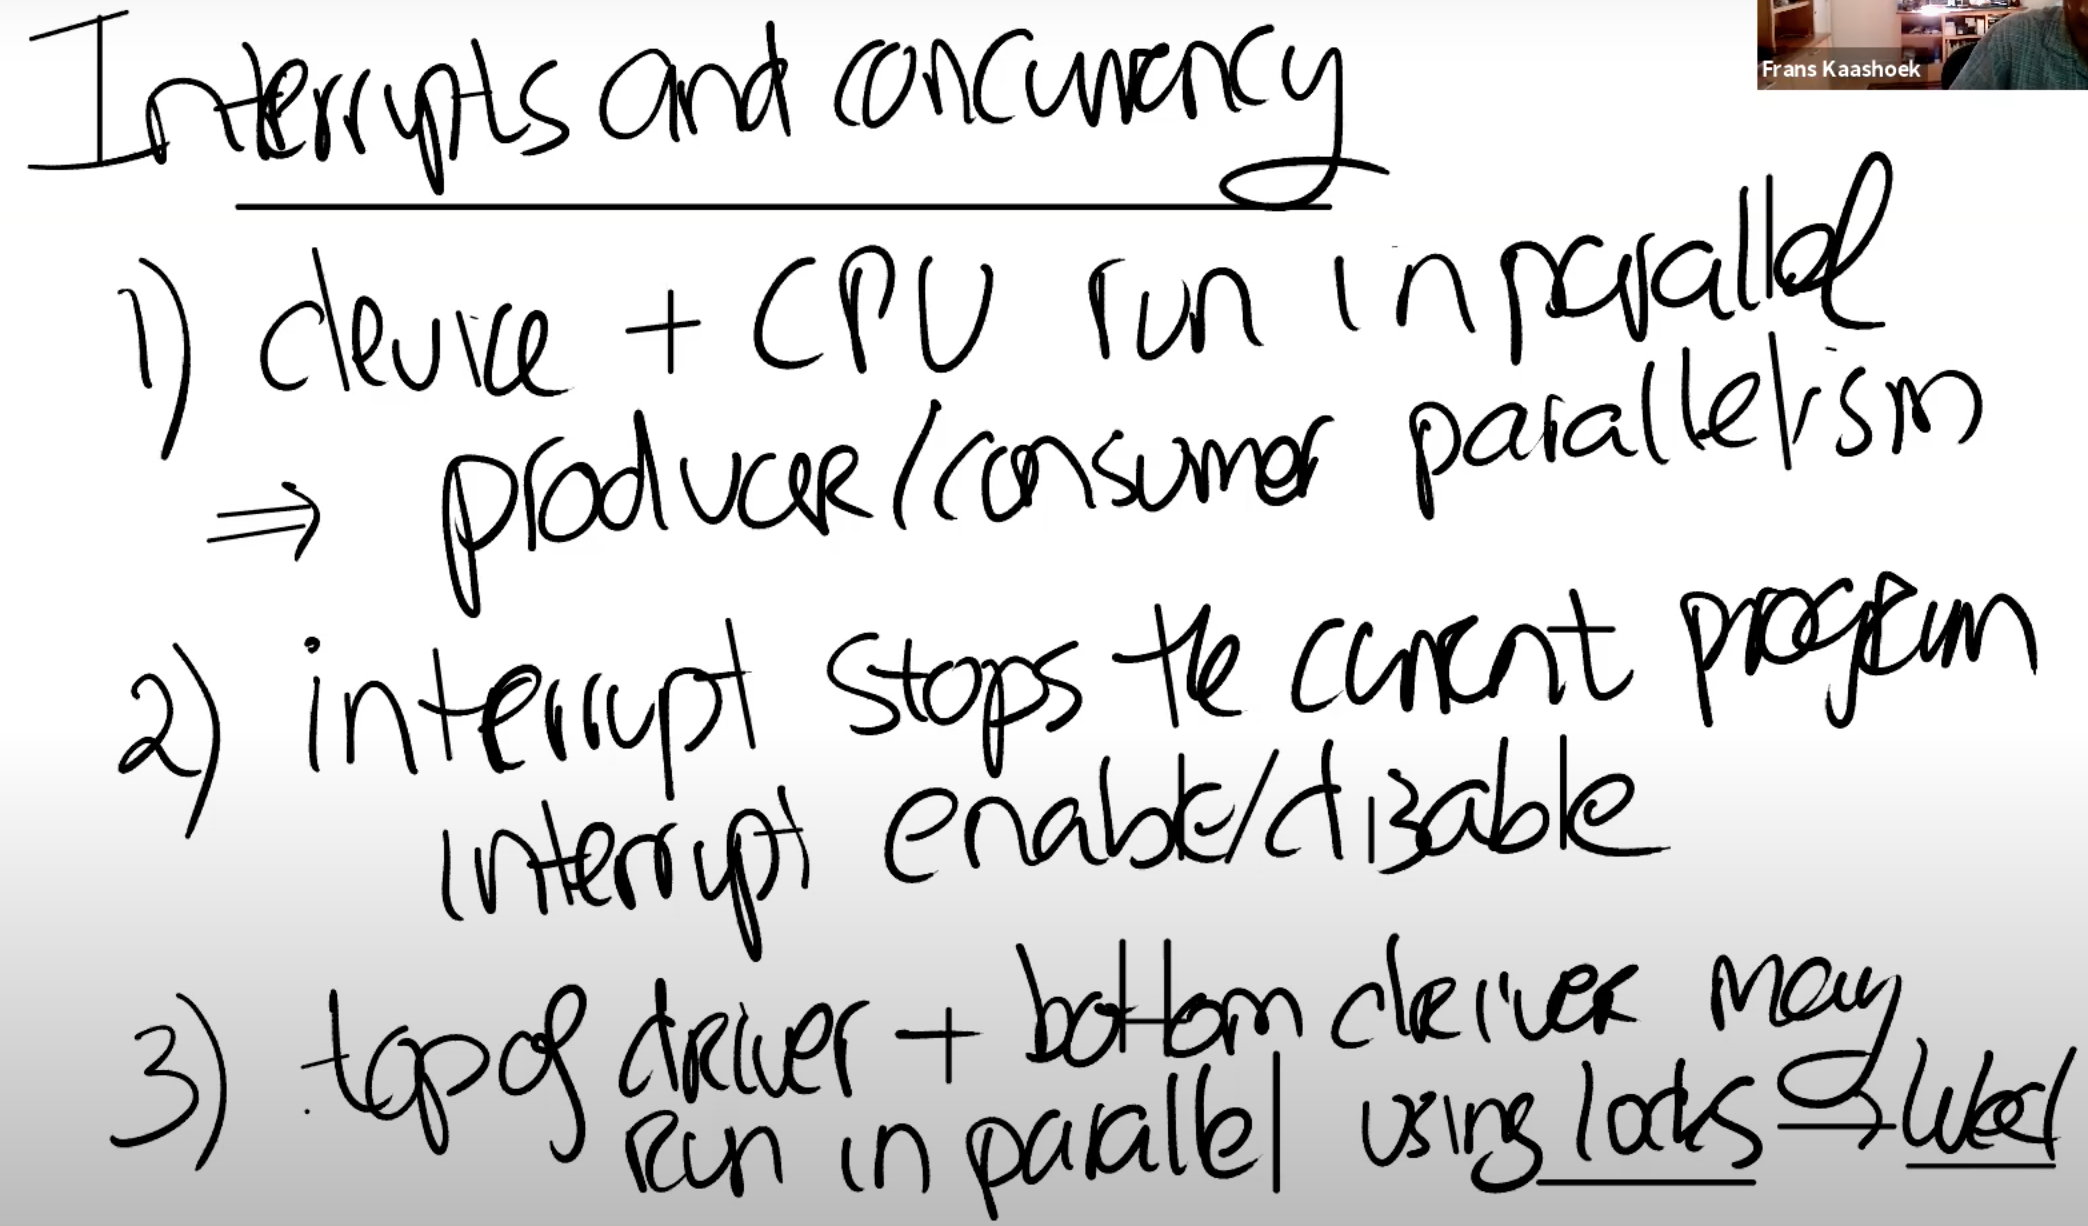 Interrupts and concurrency
Frans Kaashoek
1) device + CPU run in parallel
⇒ producer/consumer parallelism
2) interrupt stops the current program
interrupt enable/disable
3) top of driver + bottom driver may
run in parallel using locks → Wed